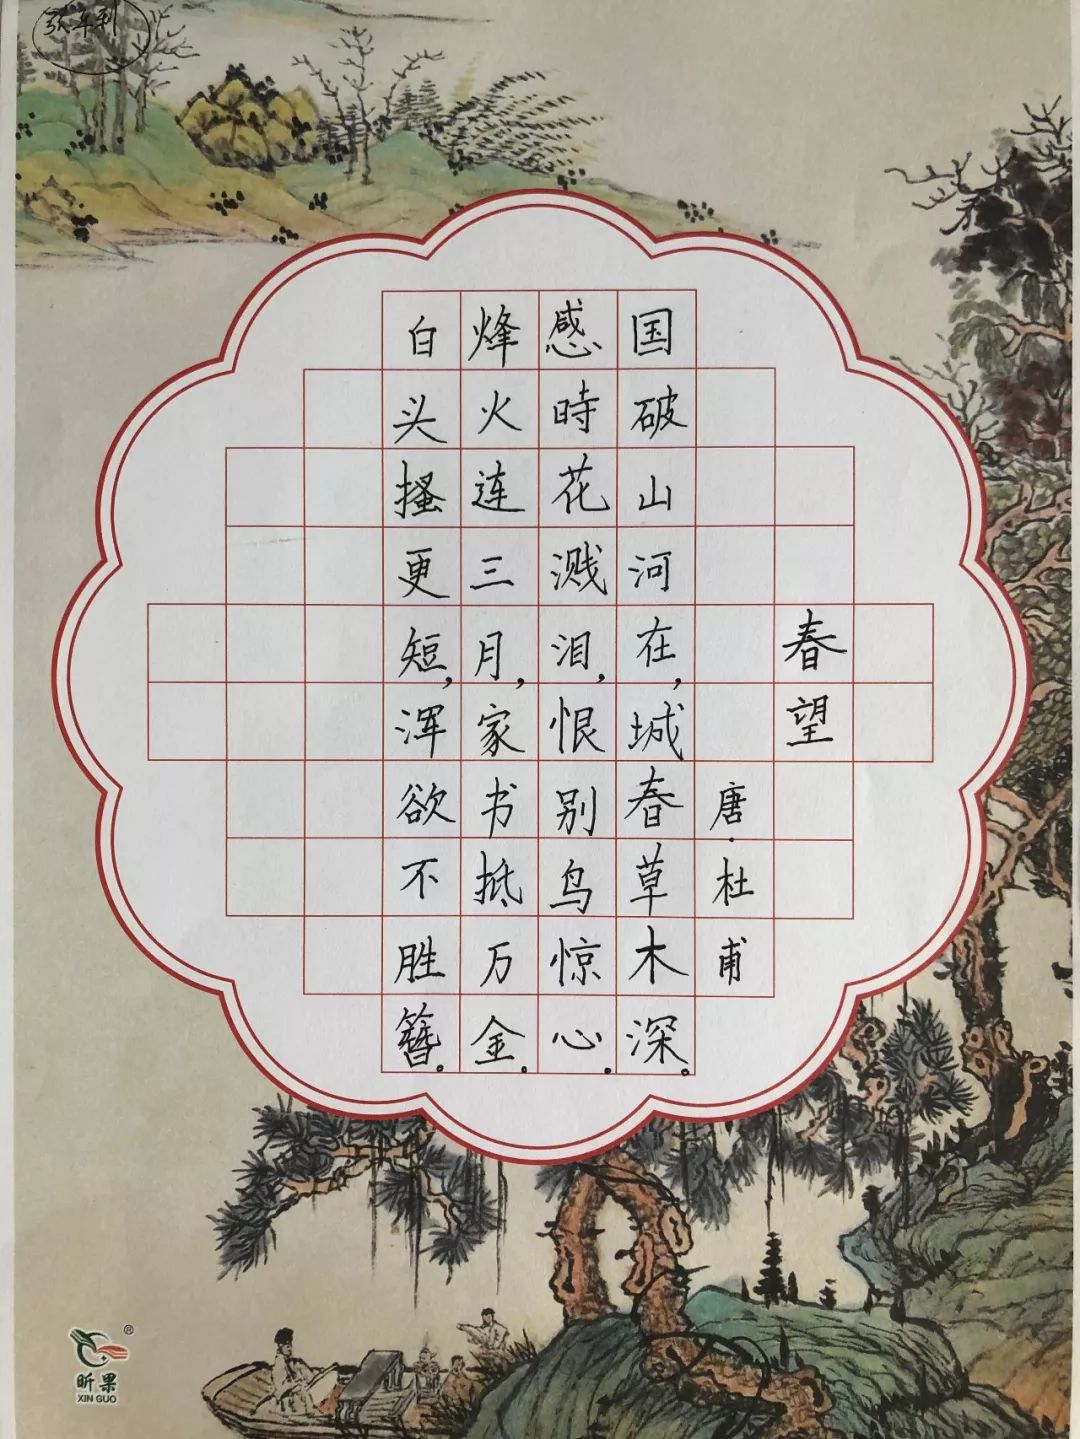 春望
唐·杜甫
国破山河在,城春草木深。
感時花溅泪,恨别鸟惊心.
烽火连三月,家书抵万金.
白头搔更短,浑欲不胜簪。
昕果
XIN GUO
®